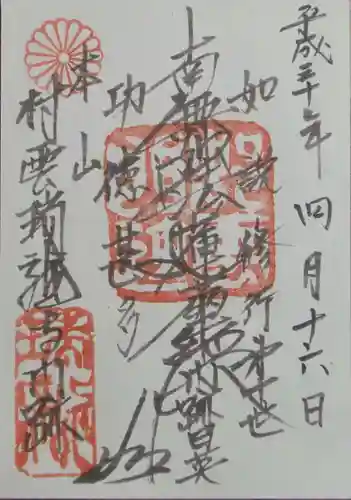 平成三十年 四月十六日
如説修行
南無妙法蓮華経
跡日英
功徳甚多
本山
村雲瑞龍寺門跡